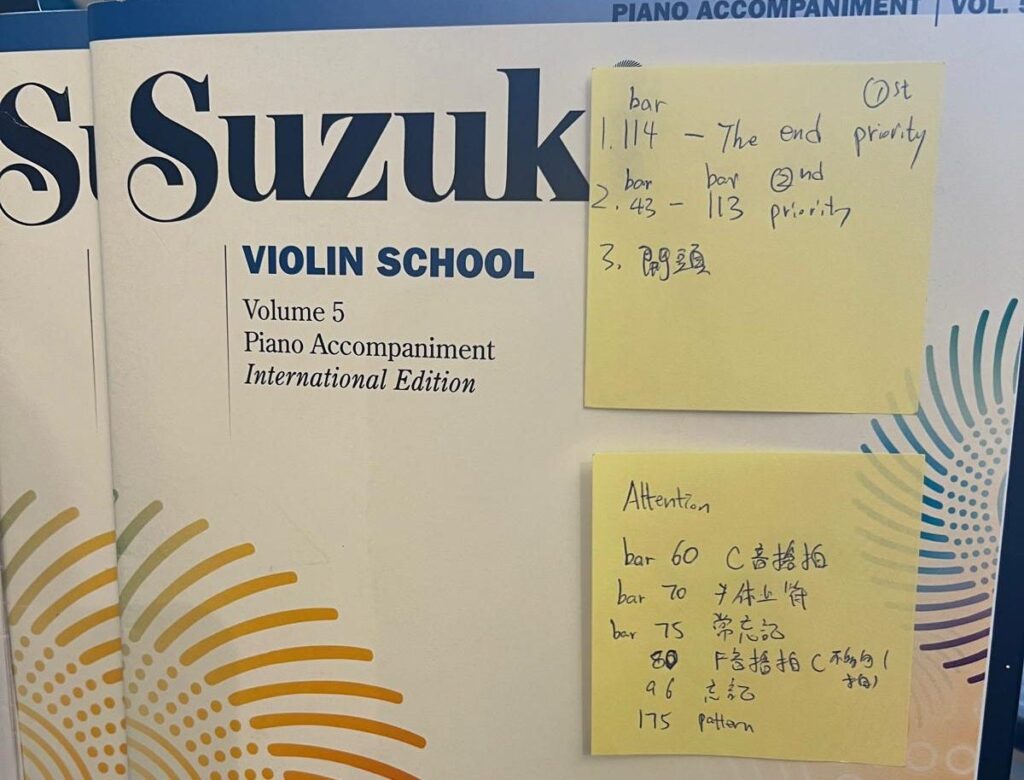 PIANO ACCOMPANIMENT | VOL. 5
Su
Suzuk
VIOLIN SCHOOL
Volume 5
Piano Accompaniment
International Edition
bar ①st
1. 114 - The end priority
bar bar ②nd
2. 43 - 113 priority
3. 開頭
Attention
bar 60 C音搶拍
bar 70 半休止符
bar 75 常忘記
80 F音搶拍 C
96 忘記
175 pattern